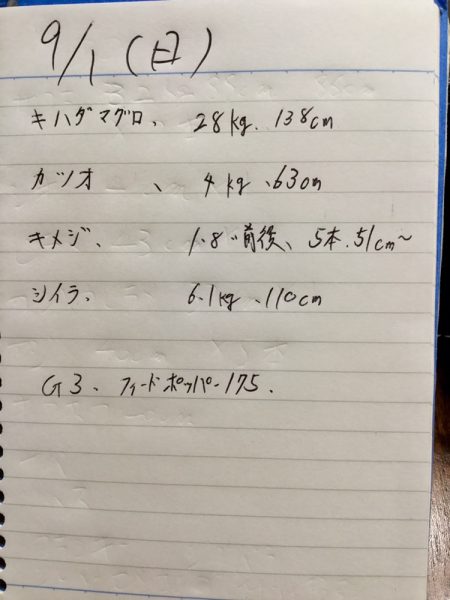 9/1(日)
キハダマグロ、 28kg、138cm
カツオ 、 4kg、63cm
キメジ、 1.8〃前後、5本、51cm〜
シイラ、 6.1kg、110cm
G3、フィードポッパー175.